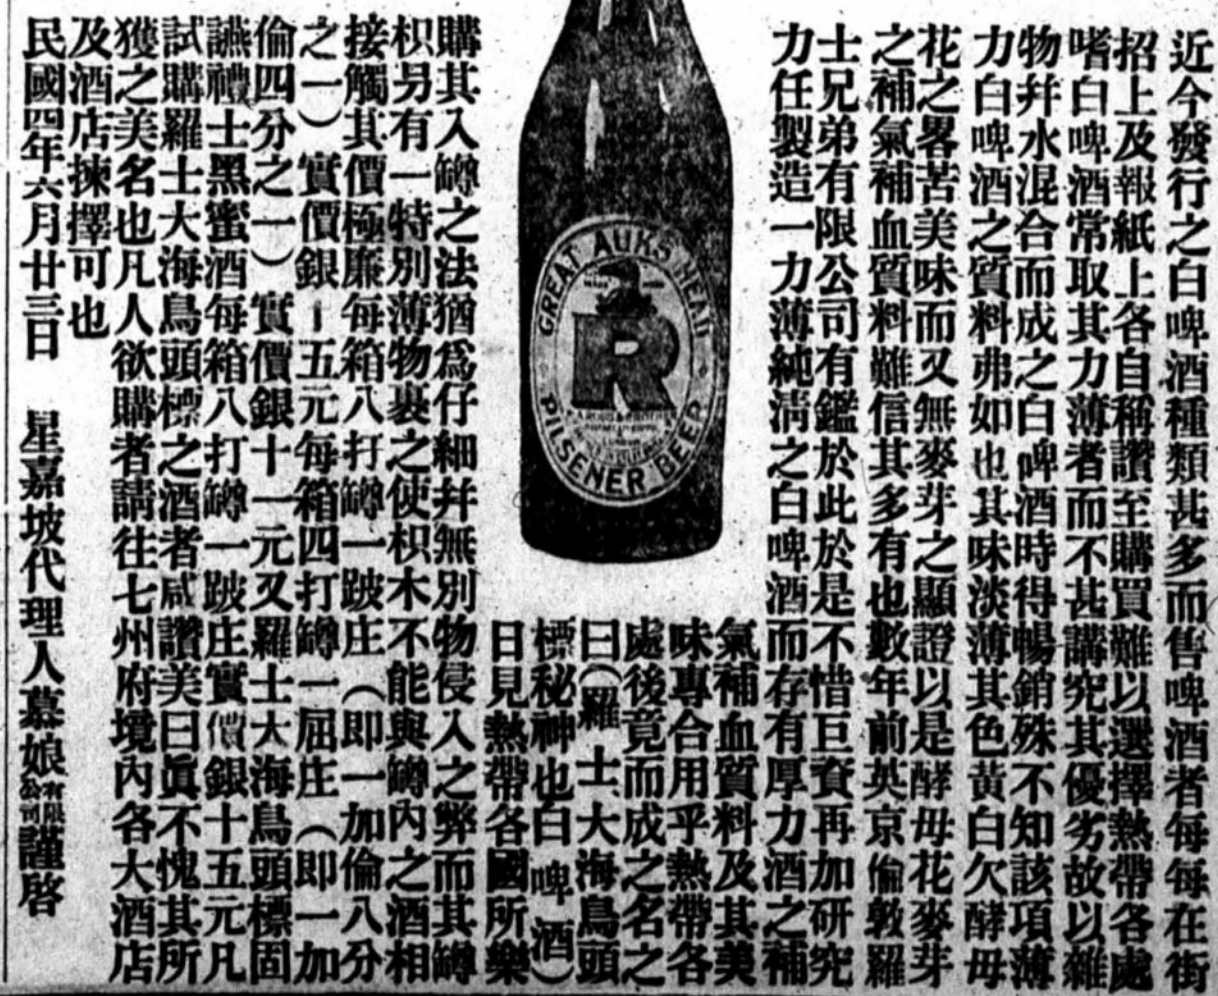 近今發行之白啤酒種類甚多而售啤酒者每每在街
招上及報紙上各自稱讚至購買難以選擇熱帶各處
嗜白啤酒常取其力薄者而不甚講究其優劣故以雜
物幷水混合而成之白啤酒時得暢銷殊不知該項薄
力白啤酒之質料弗如也其味淡薄其色黃白欠酵母
花之畧苦美味而又無麥芽之顯證以是酵母花麥芽
之補氣補血質料難信其多有也數年前英京倫敦羅
士兄弟有限公司有鑑於此於是不惜巨資再加研究
力任製造一力薄純淸之白啤酒而存有厚力酒之補
氣補血質料及其美
味專合用乎熱帶各
處後竟而成之名之
曰（羅士大海鳥頭
標秘神也白啤酒）
日見熱帶各國所樂
GREAT AUKS HEAD
R
PILSENER BEER
購其入罇之法猶爲仔細幷無別物侵入之弊而其罇
枳另有一特別薄物裹之使枳木不能與罇內之酒相
接觸其價極廉每箱八打罇一跛庄（即一加倫八分
之一）實價銀十五元每箱四打罇一屈庄（即一加
倫四分之一）實價銀十一元又羅士大海鳥頭標固
讌禮士黑蜜酒每箱八打罇一跛庄實價銀十五元凡
試購羅士大海鳥頭標之酒者咸讚美曰眞不愧其所
獲之美名也凡人欲購者請往七州府境內各大酒店
及酒店揀擇可也
民國四年六月廿三日　星嘉坡代理人慕娘有限公司謹啓